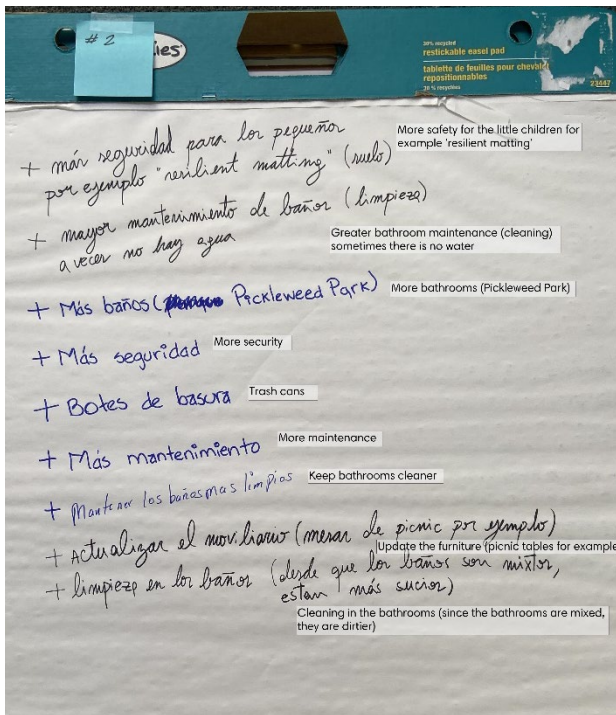 # 2
ies
30% recycled
restickable easel pad
tablette de feuilles pour chevalet
repositionnables
30 % recyclées
23447
+ más seguridad para los pequeños
por ejemplo "resilient matting" (suelo)
More safety for the little children for
example 'resilient matting'
+ mayor mantenimiento de baños (limpieza)
a veces no hay agua
Greater bathroom maintenance (cleaning)
sometimes there is no water
+ Más baños ( Pickleweed Park)
More bathrooms (Pickleweed Park)
+ Más seguridad
More security
+ Botes de basura
Trash cans
+ Más mantenimiento
More maintenance
+ Mantener los baños mas limpios
Keep bathrooms cleaner
+ Actualizar el moviliario (mesas de picnic por ejemplo)
Update the furniture (picnic tables for example
+ limpieza en los baños (desde que los baños son mixtos,
estan más sucios)
Cleaning in the bathrooms (since the bathrooms are mixed,
they are dirtier)